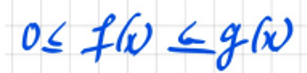 0 ≤ f(x) ≤ g(x)